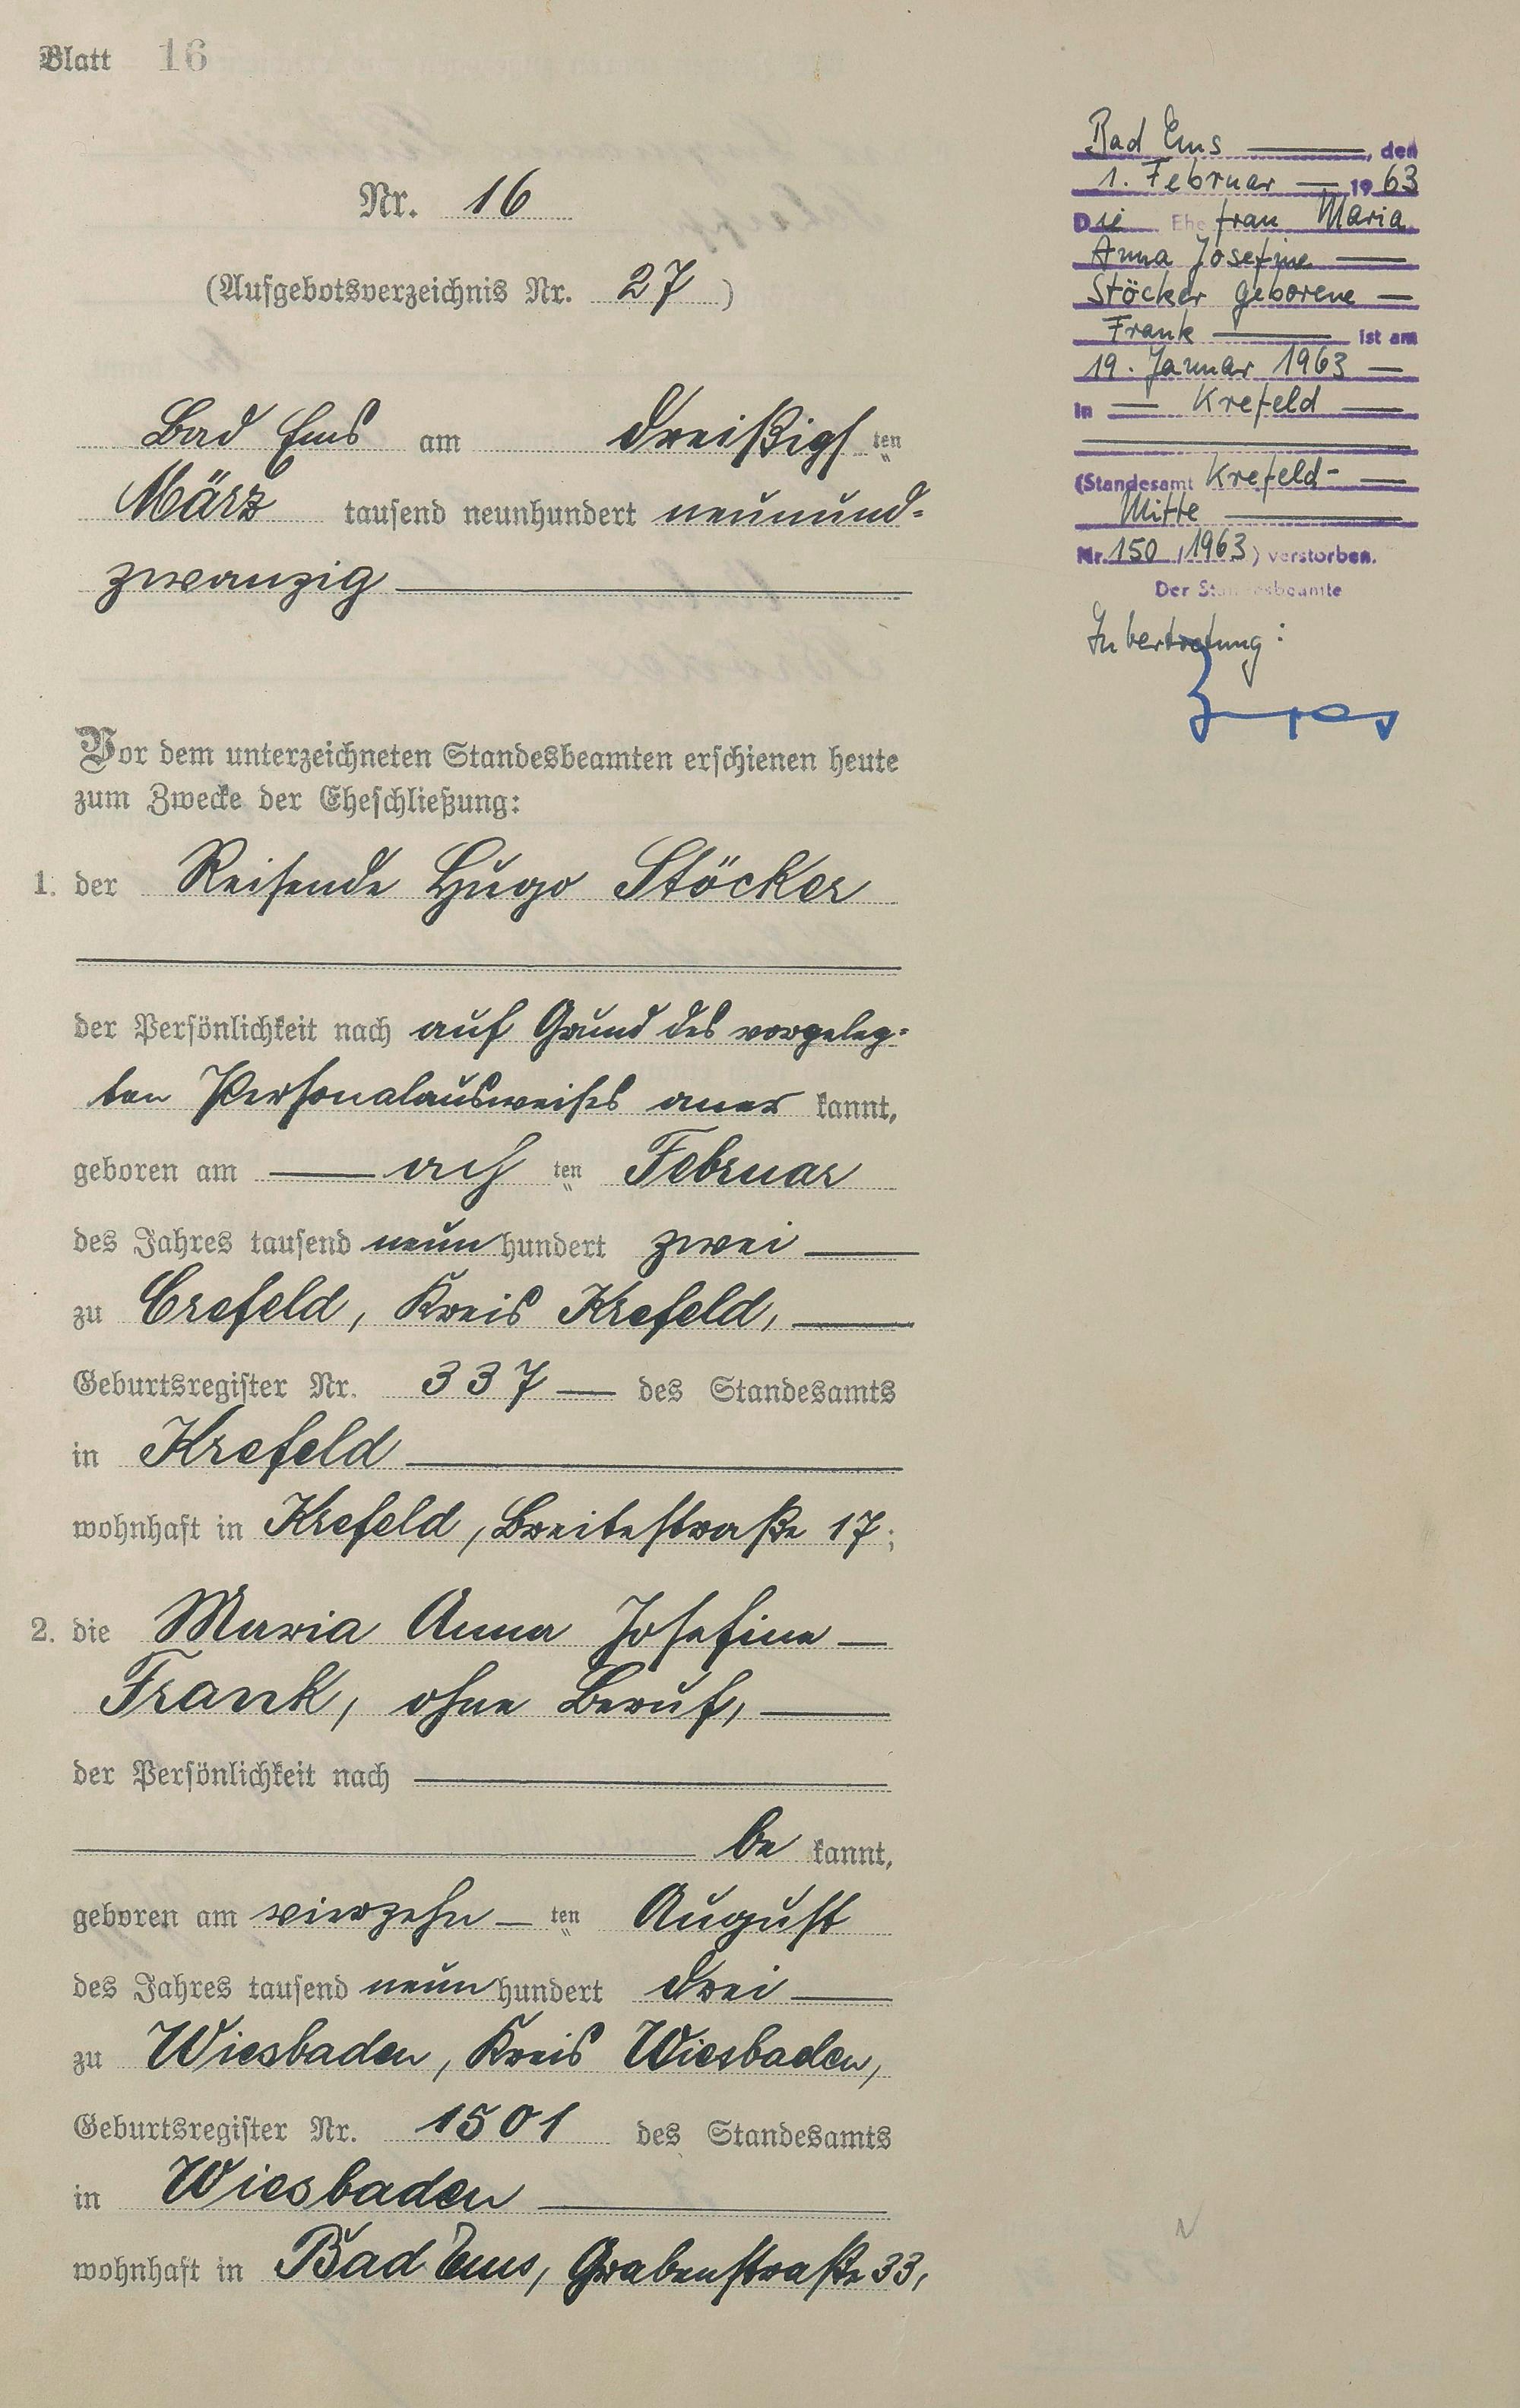 Blatt 16
Nr. 16
(Aufgebotsverzeichnis Nr. 27)
Bad Ems am dreißigsten
März tausend neunhundert neunund-
zwanzig
Vor dem unterzeichneten Standesbeamten erschienen heute
zum Zwecke der Eheschließung:
1. der Reisende Hugo Stöcker
der Persönlichkeit nach auf Grund des vorgeleg-
ten Personalausweises aner kannt,
geboren am achten Februar
des Jahres tausend neun hundert zwei
zu Crefeld, Kreis Krefeld,
Geburtsregister Nr. 337 des Standesamts
in Krefeld
wohnhaft in Krefeld, Breitestraße 17;
2. die Maria Anna Josefine
Frank, ohne Beruf,
der Persönlichkeit nach
be kannt,
geboren am vierzehn ten August
des Jahres tausend neun hundert drei
zu Wiesbaden, Kreis Wiesbaden,
Geburtsregister Nr. 1501 des Standesamts
in Wiesbaden
wohnhaft in Bad Ems, Grabenstraße 33,
Bad Ems, den
1. Februar 1963
Die Ehefrau Maria
Anna Josefine
Stöcker geborene
Frank ist am
19. Januar 1963
in Krefeld
(Standesamt Krefeld-
Mitte
Nr. 150/1963) verstorben.
Der Standesbeamte
In Vertretung: